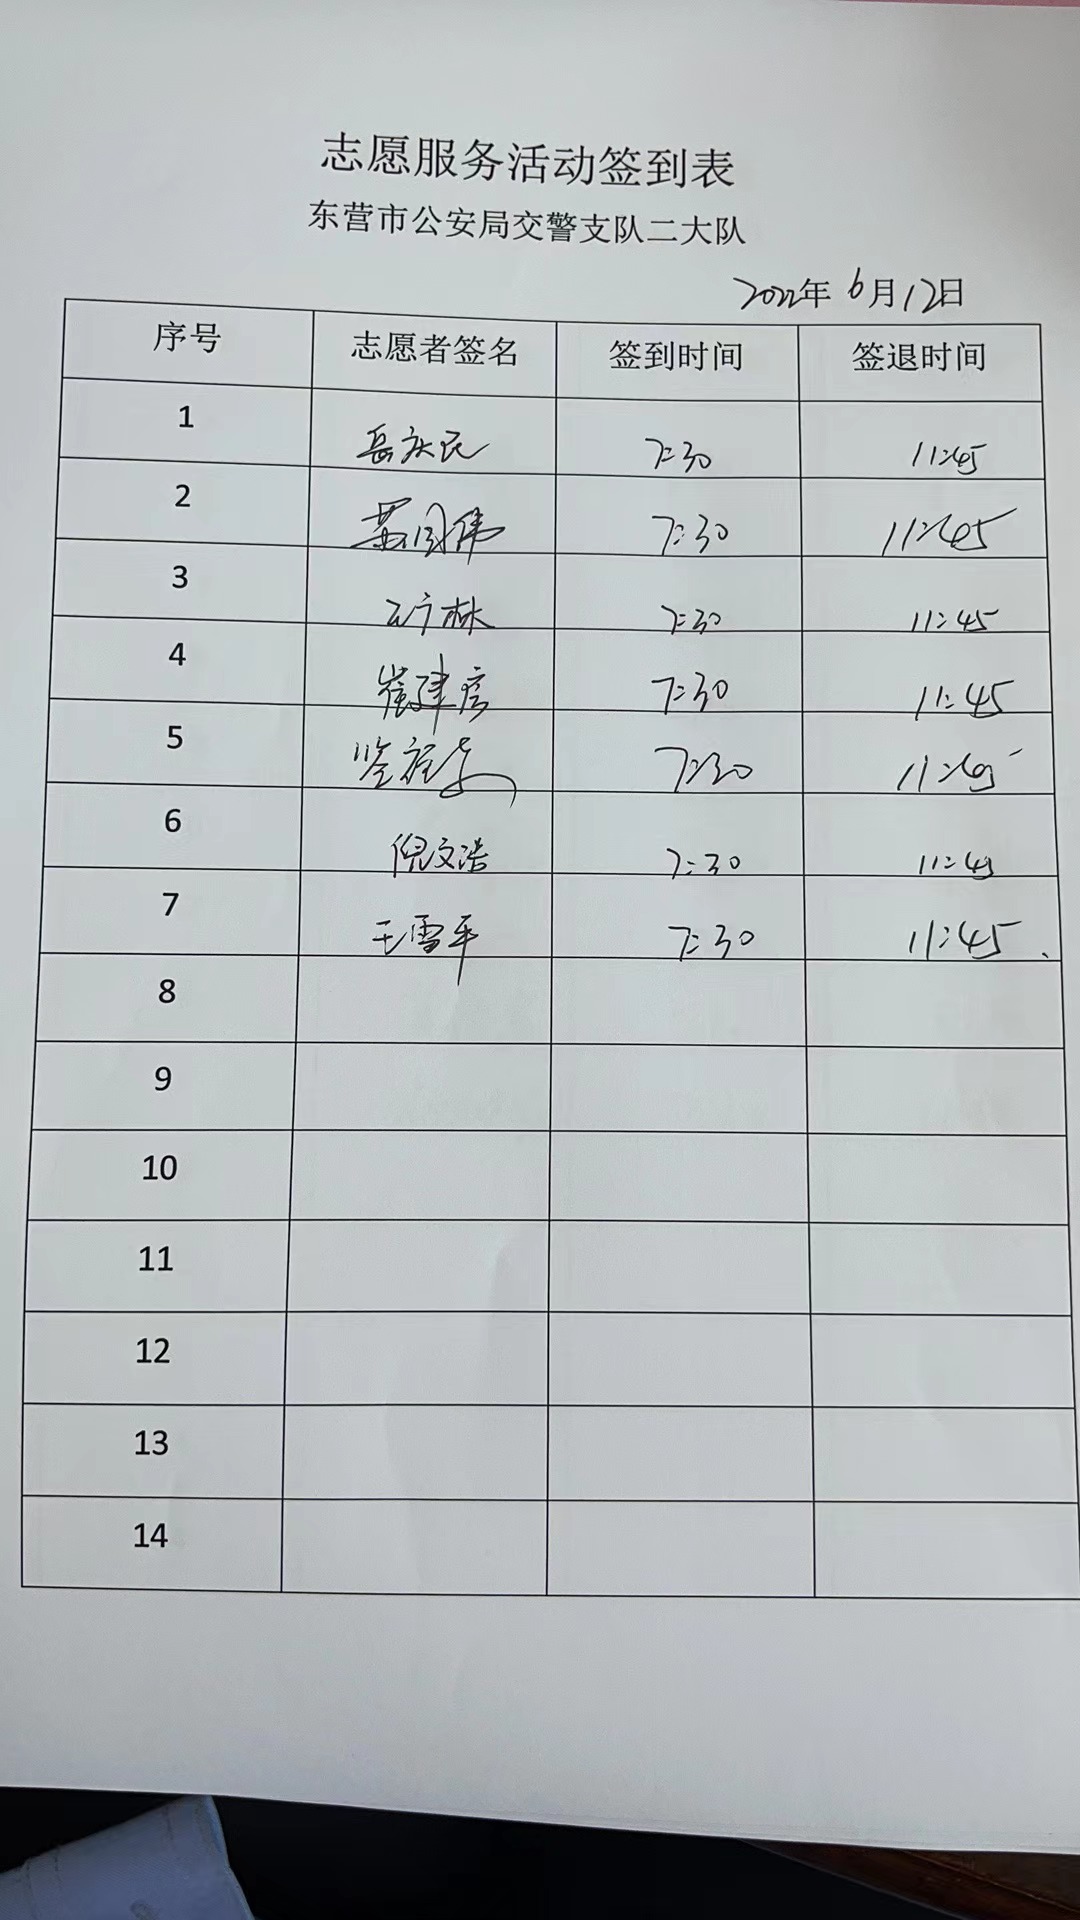 志愿服务活动签到表
东营市公安局交警支队二大队
2022年 6月12日
序号 志愿者签名 签到时间 签退时间
1 岳庆民 7:30 11:45
2 7:30 11:45
3 7:30 11:45
4 崔建房 7:30 11:45
5 7:30 11:45
6 倪文浩 7:30 11:45
7 王雪平 7:30 11:45
8
9
10
11
12
13
14